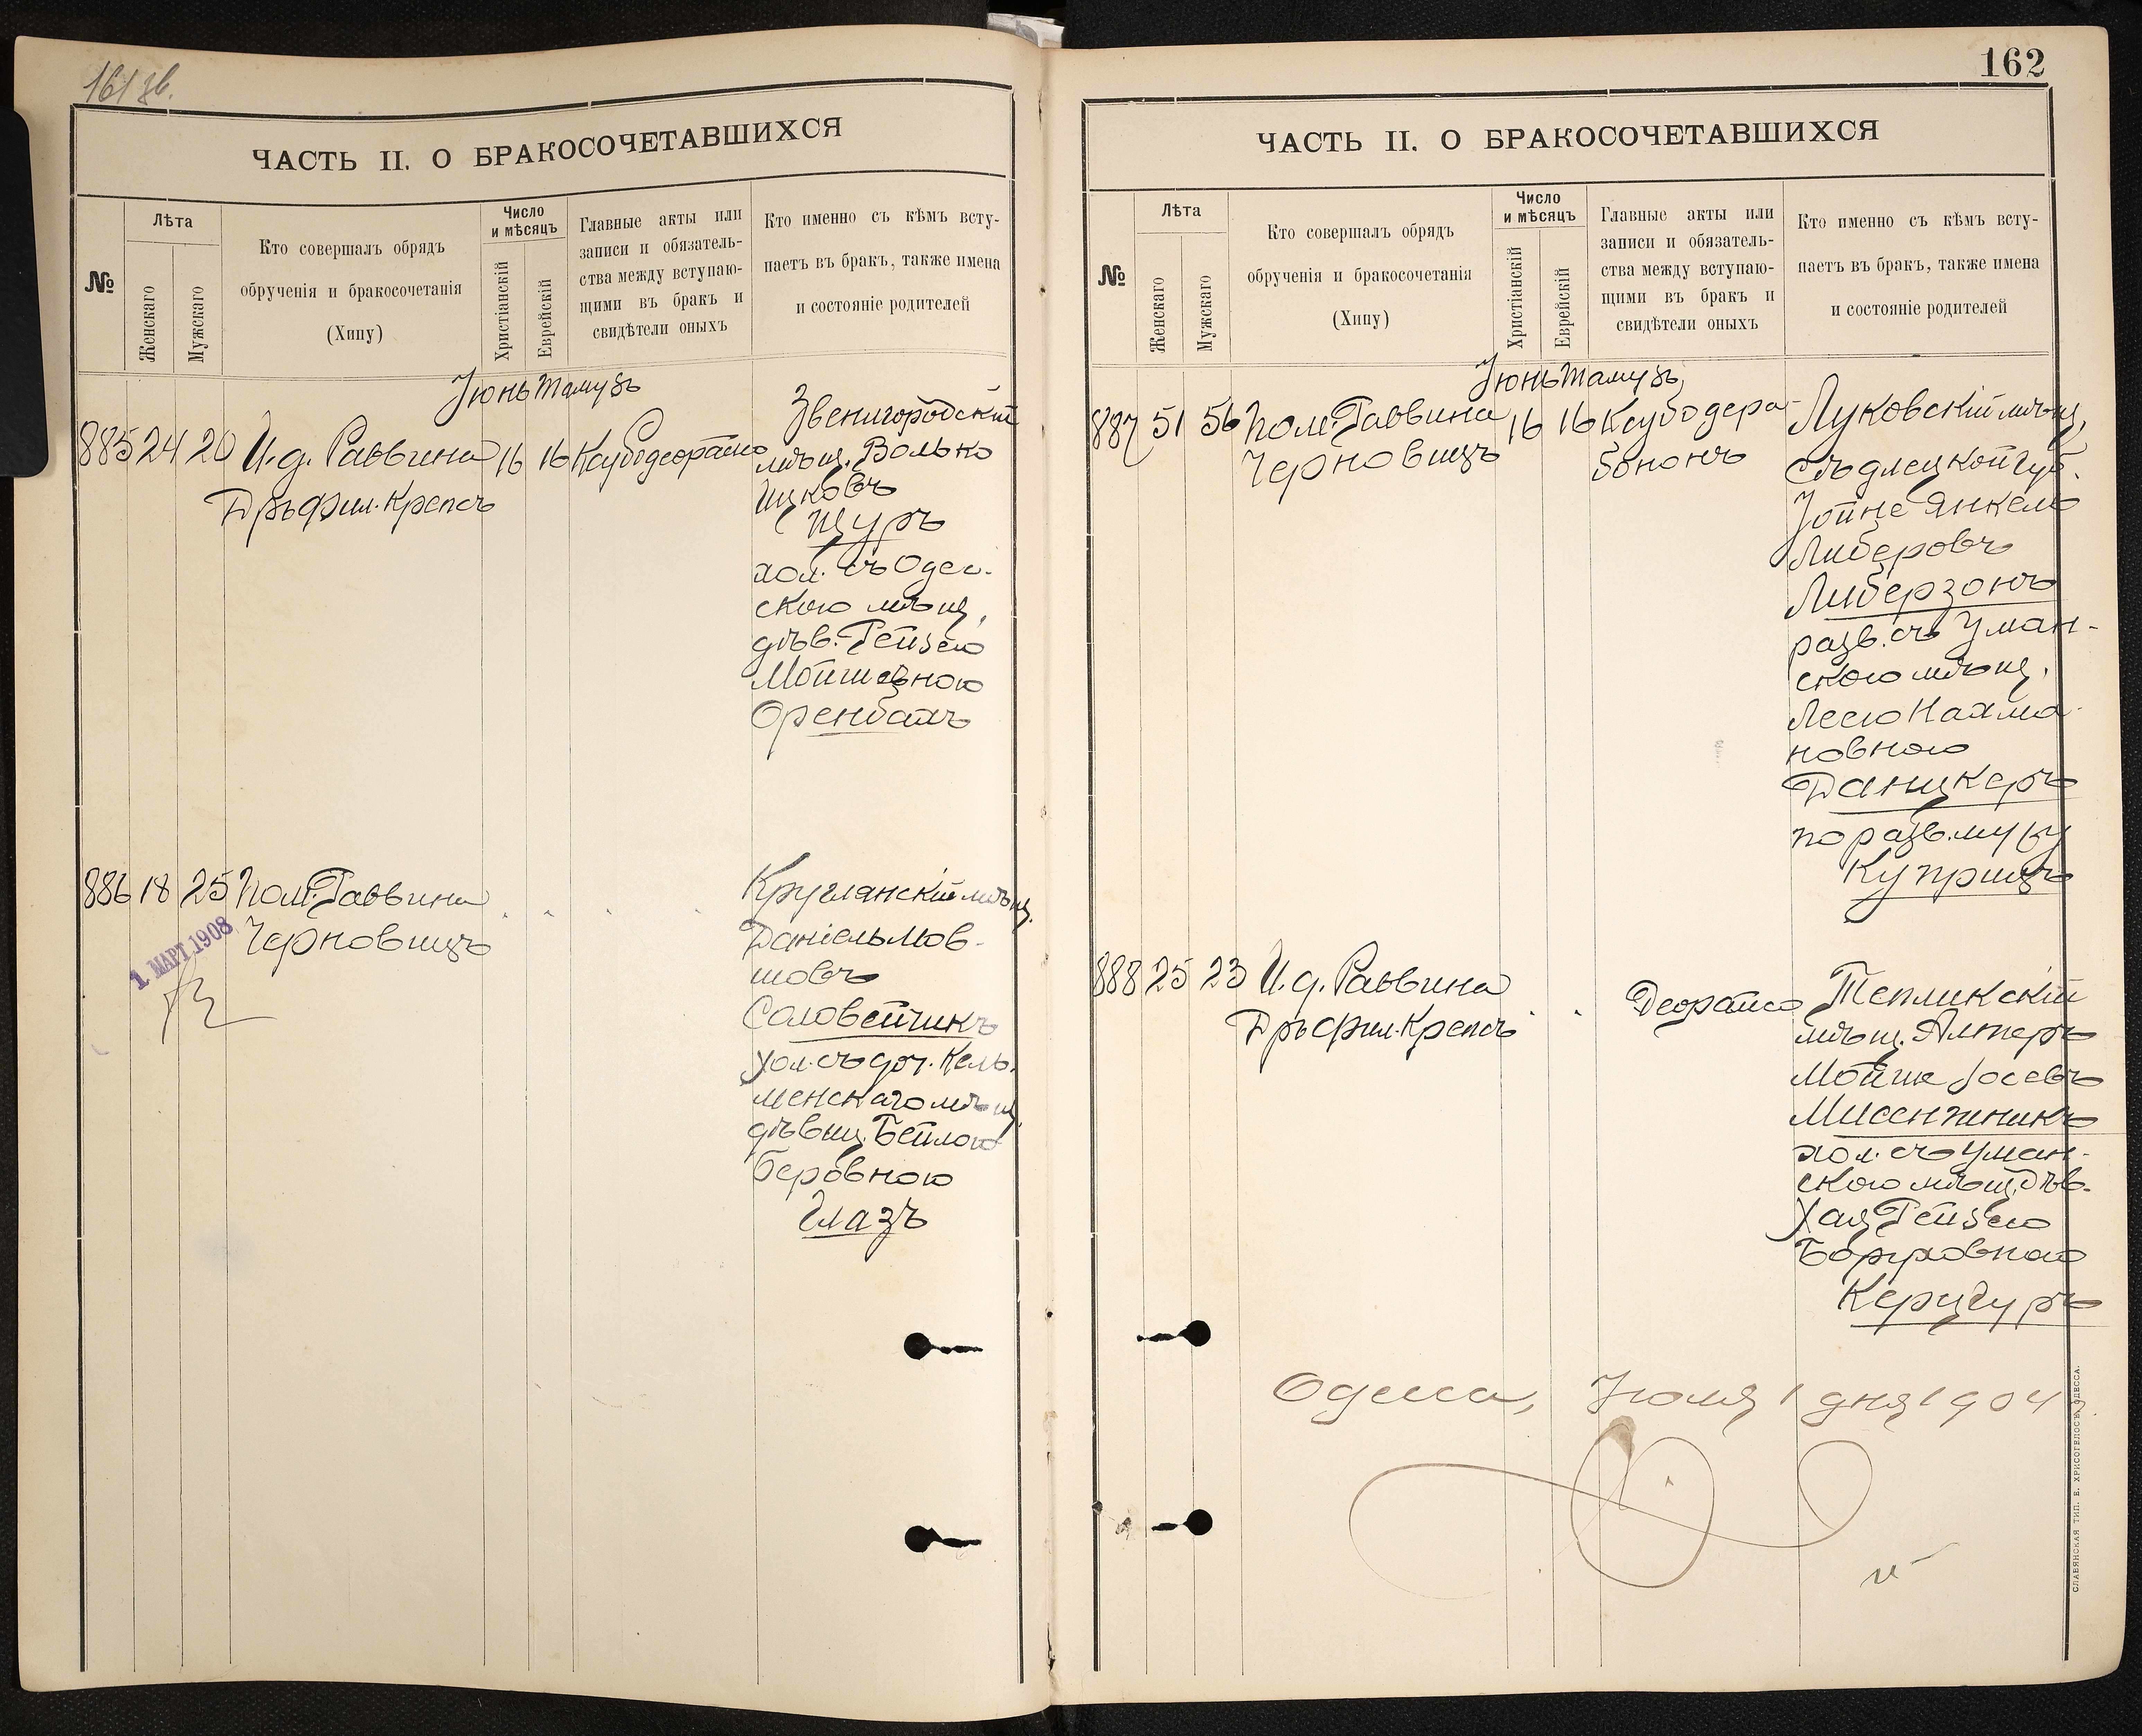 161 зв.
ЧАСТЬ II. О БРАКОСОЧЕТАВШИХСЯ
№
Лѣта
Женскаго
Мужскаго
Кто совершалъ обрядъ
обрученія и бракосочетанія
(Хипу)
Число
и мѣсяцъ
Христіанскій
Еврейскій
Главные акты или
записи и обязатель-
ства между вступаю-
щими въ бракъ и
свидѣтели оныхъ
Кто именно съ кѣмъ всту-
паетъ въ бракъ, также имена
и состояніе родителей
Іюнь Тамузъ
885 24 20 И. д. Раввина 16 16
Дръ фил. Крепсъ
Звенигородскій
мѣщ. Волько
Ицковъ
Щуръ
хол. съ Одес-
скою мѣщ.
дѣв. Рейзею
Мойшевною
Оренбахъ
886 18 25 Пом. Раввина
Черновицъ
1. МАРТ. 1908
Круглянскій мѣщ.
Даніель Мов-
шовъ
Соловейчикъ
хол. съ доч. Кель-
менскаго мѣщ.
дѣвиц. Бейлою
Беровною
Глазъ
162
ЧАСТЬ II. О БРАКОСОЧЕТАВШИХСЯ
№
Лѣта
Женскаго
Мужскаго
Кто совершалъ обрядъ
обрученія и бракосочетанія
(Хипу)
Число
и мѣсяцъ
Христіанскій
Еврейскій
Главные акты или
записи и обязатель-
ства между вступаю-
щими въ бракъ и
свидѣтели оныхъ
Кто именно съ кѣмъ всту-
паетъ въ бракъ, также имена
и состояніе родителей
Іюнь Тамузъ
887 51 56 Пом. Раввина 16 16 Ксубо дера-
Черновицъ бононъ
Луковскій мѣщ.
Сѣдлецкой губ.
Іойне Янкель
Либеровъ
Либерзонъ
разв. съ Уман-
скою мѣщ.
Лесею Нахма-
новною
Данцкеръ
по разв. мужу
Купришъ
888 25 23 И. д. Раввина Деорайсо
Дръ фил. Крепсъ
Тепликскій
мѣщ. Алтеръ
Мойше Іосевъ
Мисенжникъ
хол. съ Уман-
скою мѣщ. дѣв.
Хая Рейзею
Борховною
Керцгуръ
Одесса, Іюля 1 дня 1904 г.
СЛАВЯНСКАЯ ТИП. Е. ХРИСОГЕЛОСЪ, ОДЕССА.